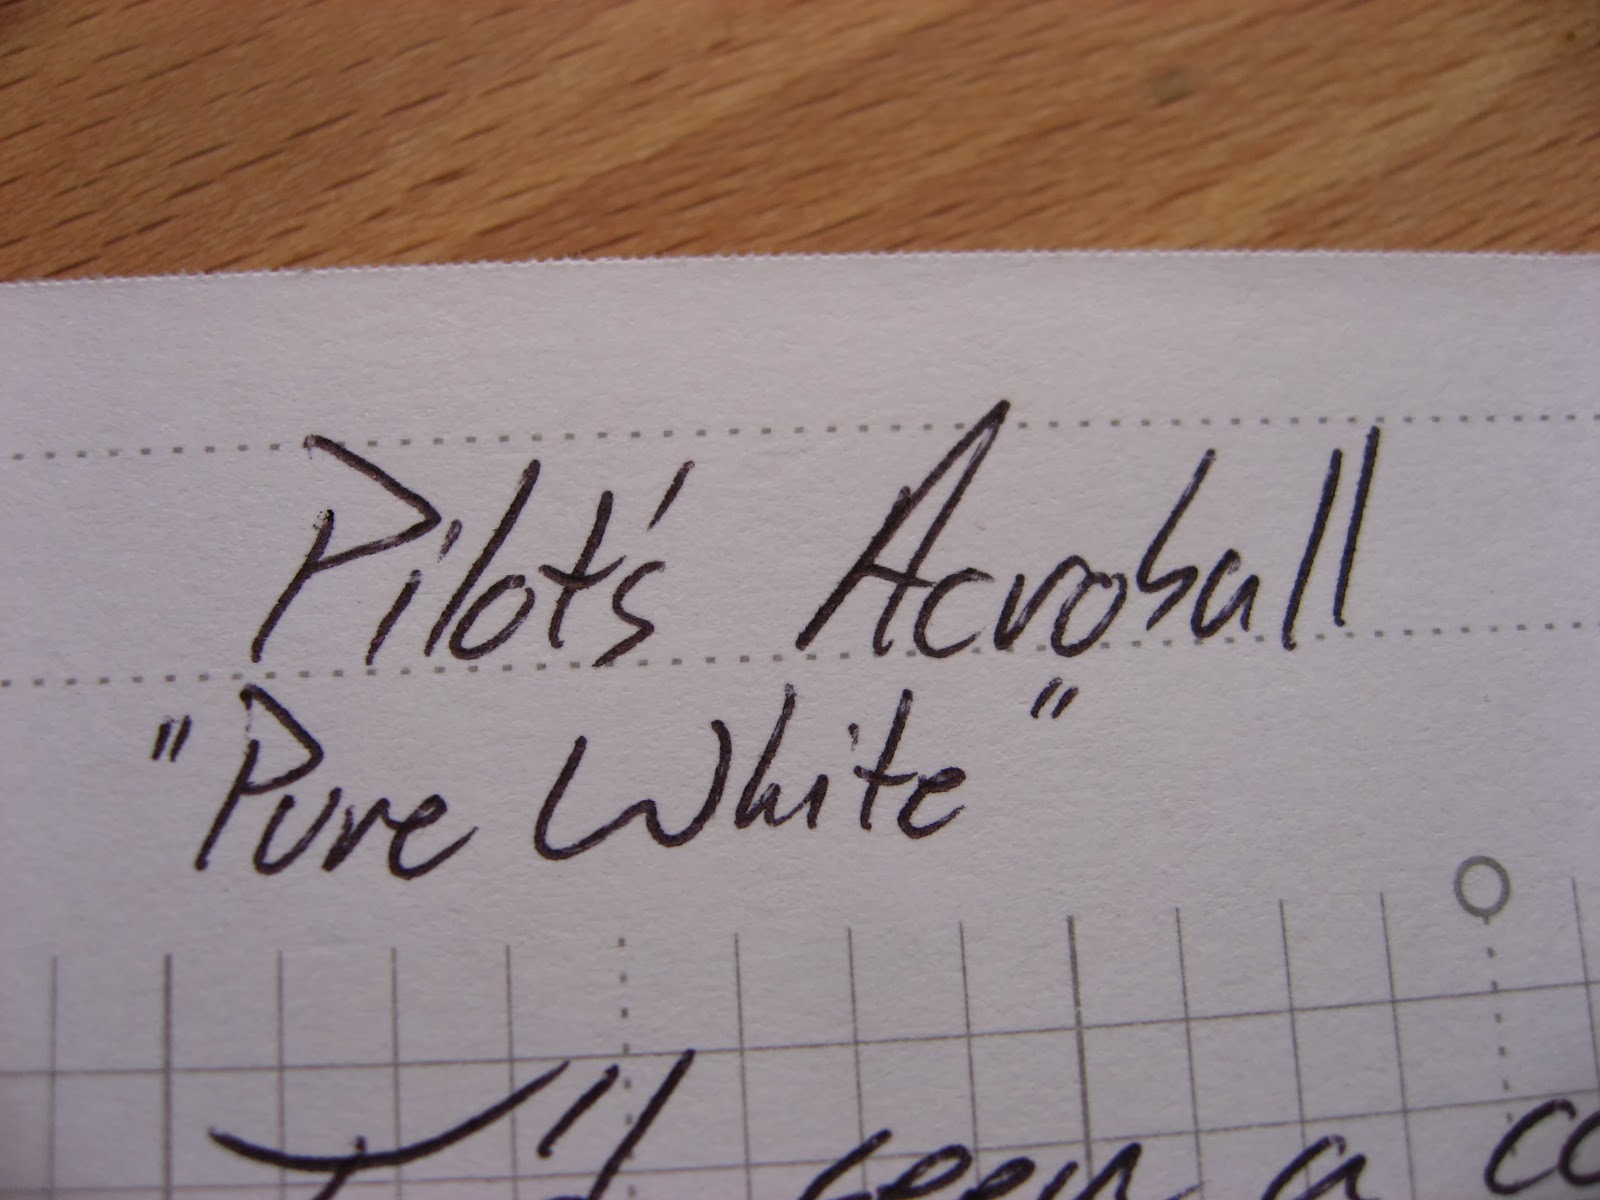 Pilot's Acroball
"Pure White"
I'd seen a